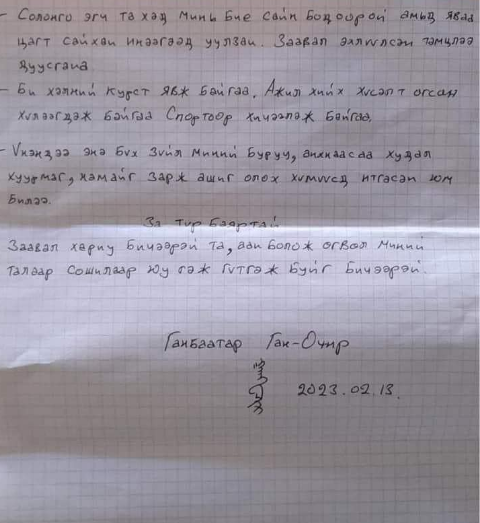 - Солонго эгч та хэд минь бие сайн бодоорой амьд яваа
цагт сайхан инээгээд уулзан. Заавал эхлүүлсэн тэмцлээ
дуусгана.
- Би хэлний курст явж байгаа. Ажил хийх хүсэлт өгсөн
хүлээгдэж байгаа спортоор хичээлэж байгаа.
- Үнэндээ энэ бүх зүйл миний буруу, анхнаасаа худал
хуурмаг, намайг зарж ашиг олох хүмүүсд итгэсэн юм
билээ.
За түр баяртай
Заавал хариу бичээрэй та, аан болож өгвөл миний
талаар сошилаар юу гэж гүтгэж буйг бичээрэй.
Ганбаатар Ган-Очир
2023.02.13.